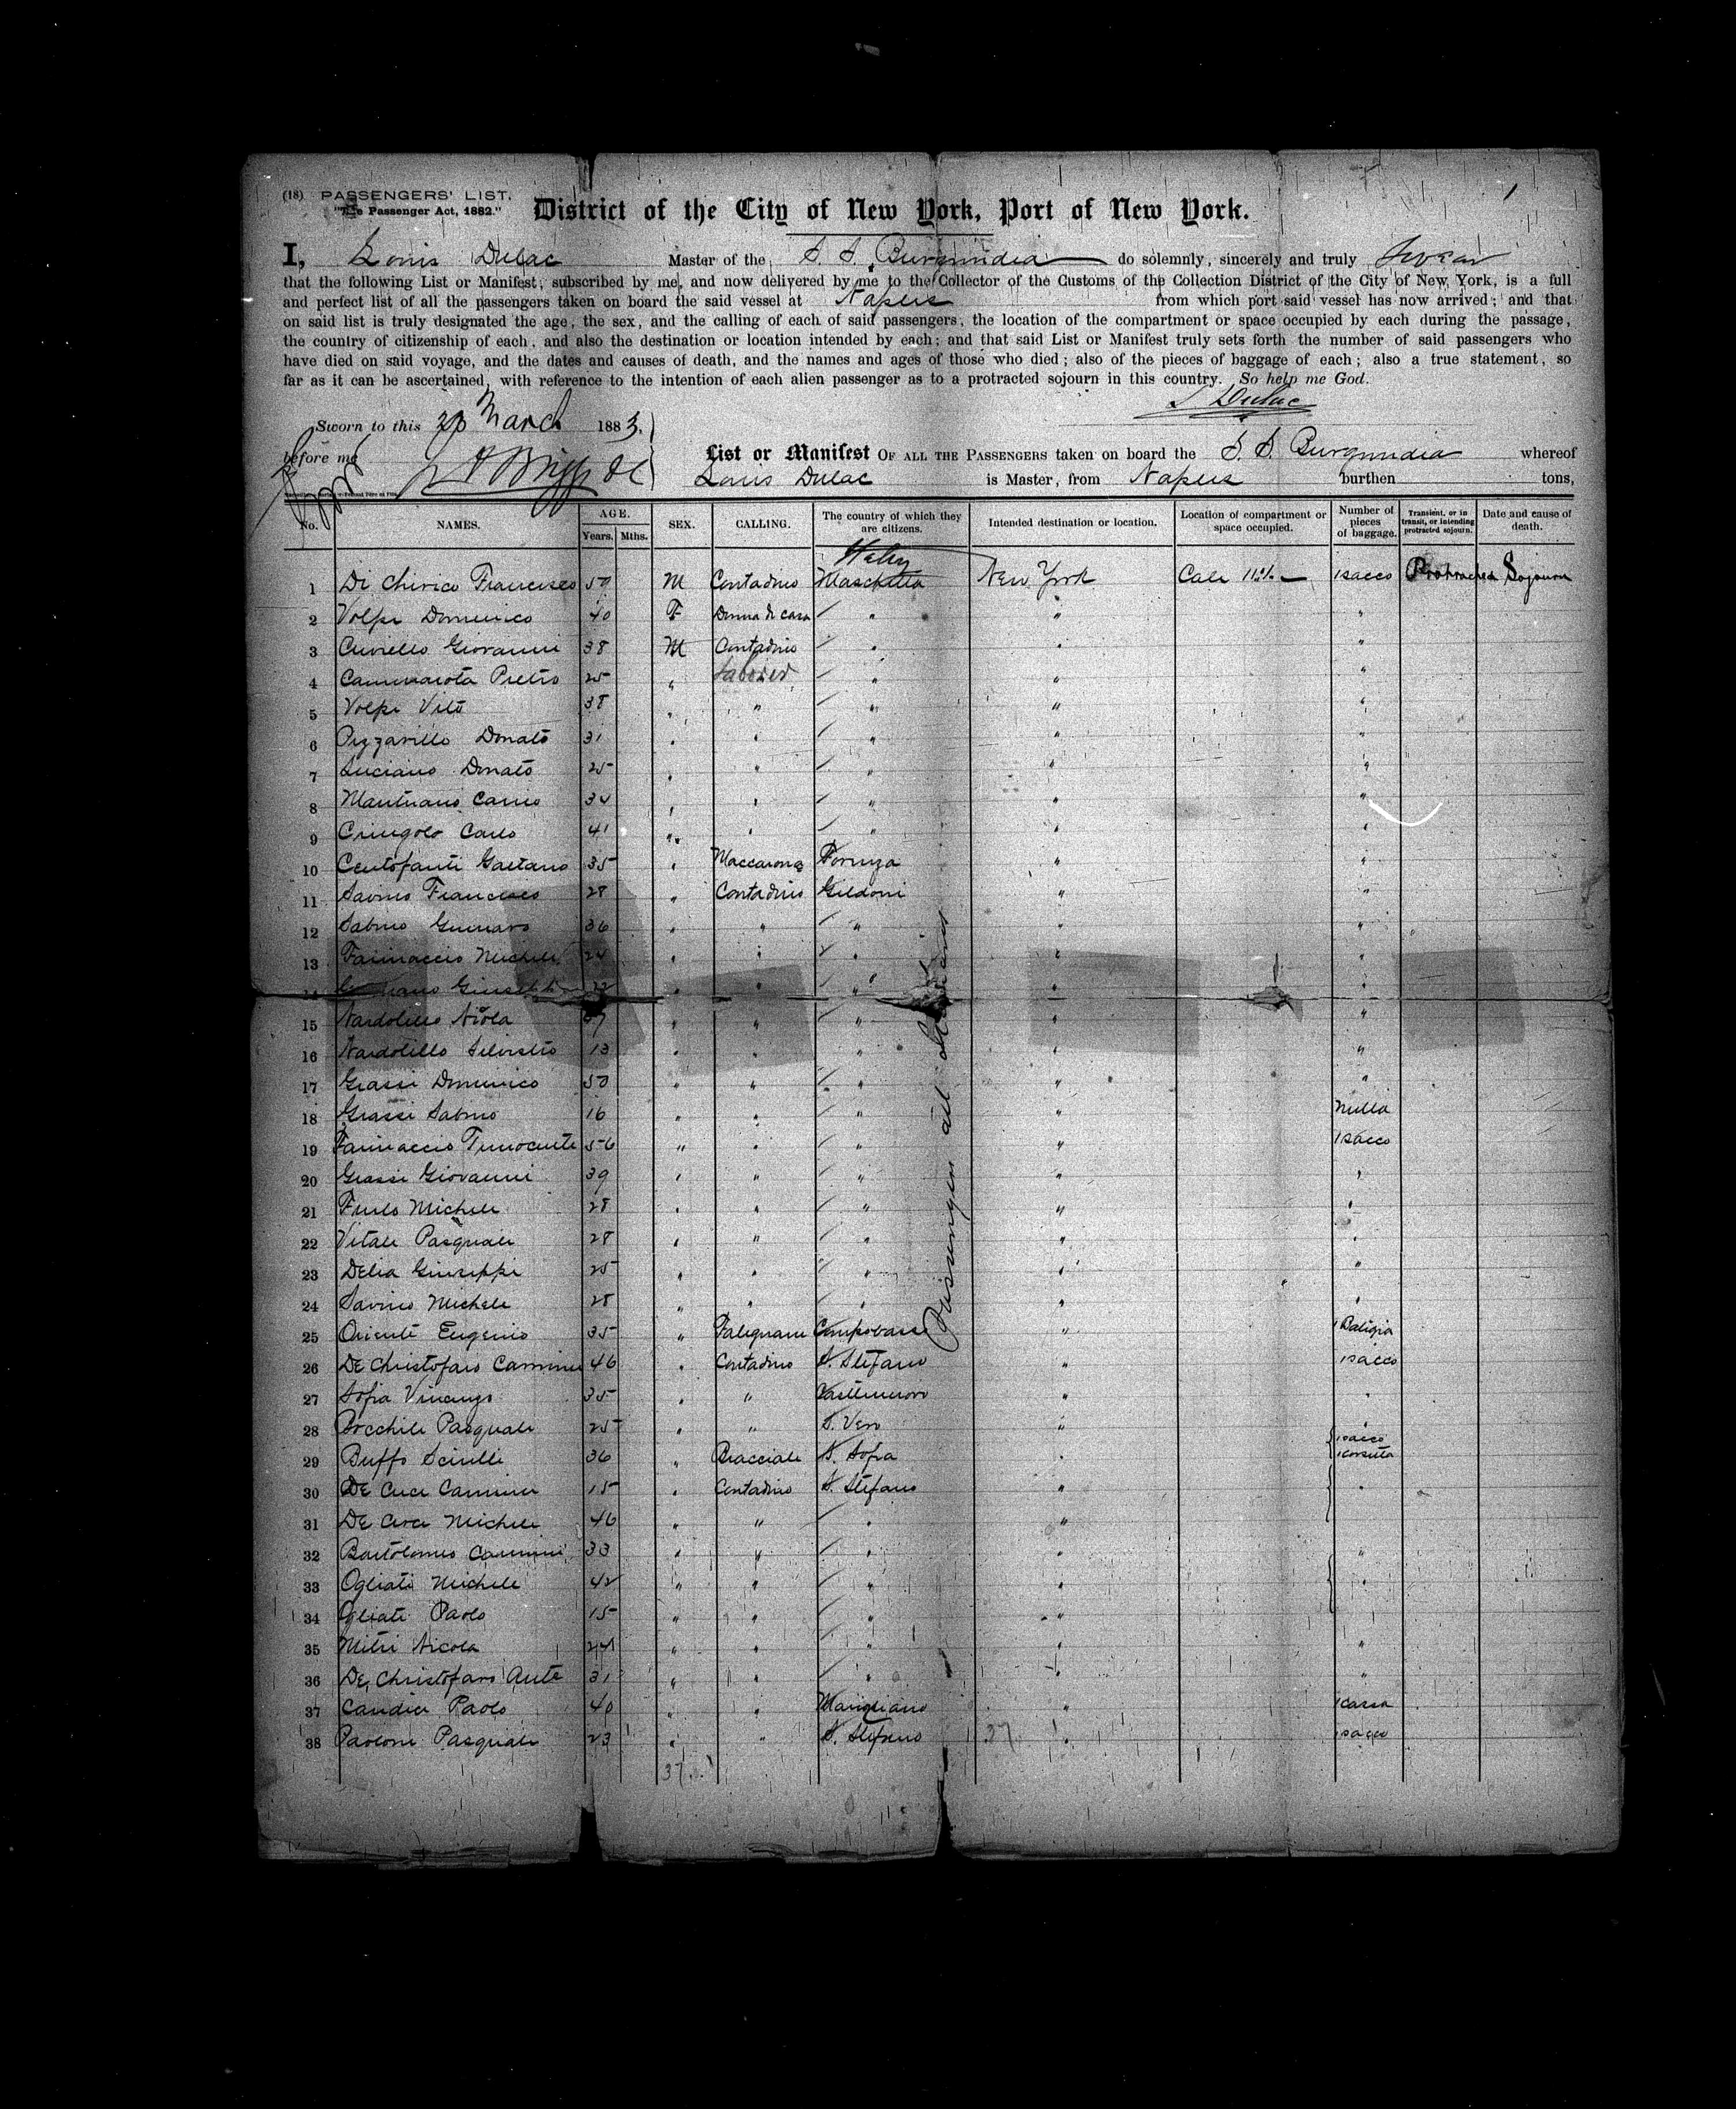 (18) PASSENGERS' LIST.
"The Passenger Act, 1882."
District of the City of New York, Port of New York.
1
I, Louis Dulac Master of the S. S. Burgundia do solemnly, sincerely and truly Swear
that the following List or Manifest, subscribed by me, and now delivered by me to the Collector of the Customs of the Collection District of the City of New York, is a full
and perfect list of all the passengers taken on board the said vessel at Naples from which port said vessel has now arrived; and that
on said list is truly designated the age, the sex, and the calling of each of said passengers, the location of the compartment or space occupied by each during the passage,
the country of citizenship of each, and also the destination or location intended by each; and that said List or Manifest truly sets forth the number of said passengers who
have died on said voyage, and the dates and causes of death, and the names and ages of those who died; also of the pieces of baggage of each; also a true statement, so
far as it can be ascertained, with reference to the intention of each alien passenger as to a protracted sojourn in this country. So help me God.
L Dulac
Sworn to this 20 March 1883.
before me
List or Manifest OF ALL THE PASSENGERS taken on board the S. S. Burgundia whereof
Louis Dulac is Master, from Naples burthen tons,
No. NAMES. AGE. Years. Mths. SEX. CALLING. The country of which they are citizens. Intended destination or location. Location of compartment or space occupied. Number of pieces of baggage. Transient, or in transit, or intending protracted sojourn. Date and cause of death.
Italy
1 Di Chirico Francesco 50 M Contadino Maschito New York Cale 1 sacco Protracted Sojourn
2 Volpe Domenico 40 F Donna di casa " " "
3 Cuviello Giovanni 38 M Contadino " " "
4 Cammarota Pietro 25 " Laborer " " "
5 Volpe Vito 38 " " " " "
6 Pizzarillo Donato 31 " " " " "
7 Luciano Donato 25 " " " " "
8 Mantuano Canio 34 " " " " "
9 Cringolo Carlo 41 " " " " "
10 Centofanti Gaetano 35 " Maccarone Forenza " "
11 Savino Francesco 28 " Contadino Gildoni " "
12 Sabino Gennaro 36 " " " " "
13 Farinaccio Michele 24 " " " " "
14 Giuseppe " " " " "
15 Nardolillo Nicola " " " " "
16 Nardolillo Silvestro 13 " " " "
17 Grassi Domenico 50 " " " " "
18 Grassi Sabino 16 " " " " nulla
19 Farinaccio Innocente 56 " " " " 1 sacco
20 Grassi Giovanni 39 " " " " "
21 Furlo Michele 28 " " " " "
22 Vitale Pasquale 28 " " " " "
23 Delia Giuseppe 25 " " " " "
24 Savino Michele 28 " " " " "
25 Oriente Eugenio 35 " Falegname Campobasso " 1 Valigia
26 De Christofaro Carmine 46 " Contadino S. Stefano " 1 sacco
27 Sofia Vincenzo 35 " " Castelnuovo " "
28 Bocchile Pasquale 25 " " S. Vero " 1 sacco
29 Buffo Scirilli 36 " Bracciale S. Sofia " 1 cascetta
30 De Cuce Carmine 15 " Contadino S. Stefano " "
31 De Cuce Michele 46 " " " "
32 Bartolomeo Carmine 33 " " " " "
33 Ogliati Michele 42 " " " " "
34 Ogliati Paolo 15 " " " "
35 Mitri Nicola 24 " " " " "
36 De Christofaro Ante 31 " " " "
37 Candice Paolo 40 " " Marigliano " 1 cassa
38 Paolone Pasquale 23 " " S. Stefano 37 " 1 sacco
37
Passengers all